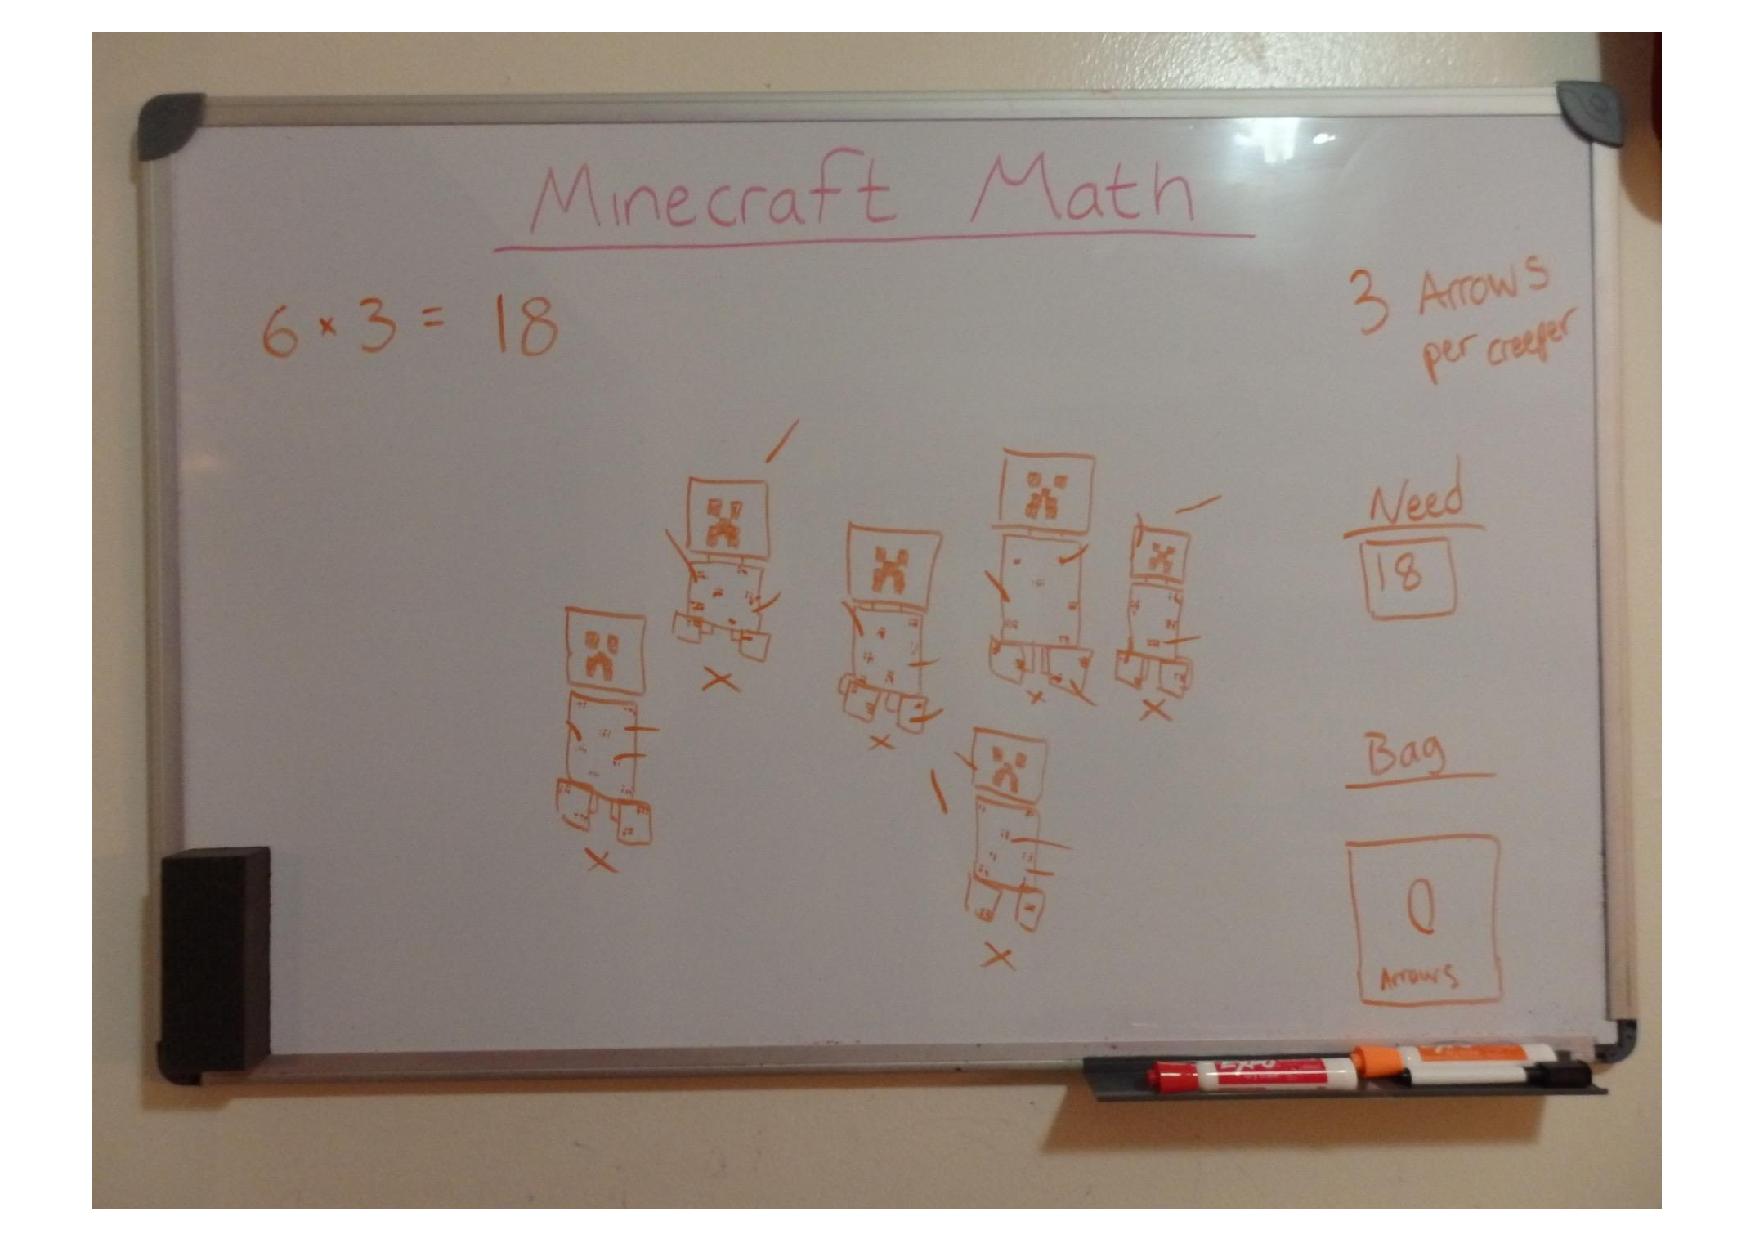 Minecraft Math
6 × 3 = 18
3 Arrows
per creeper
Need
18
Bag
0
Arrows